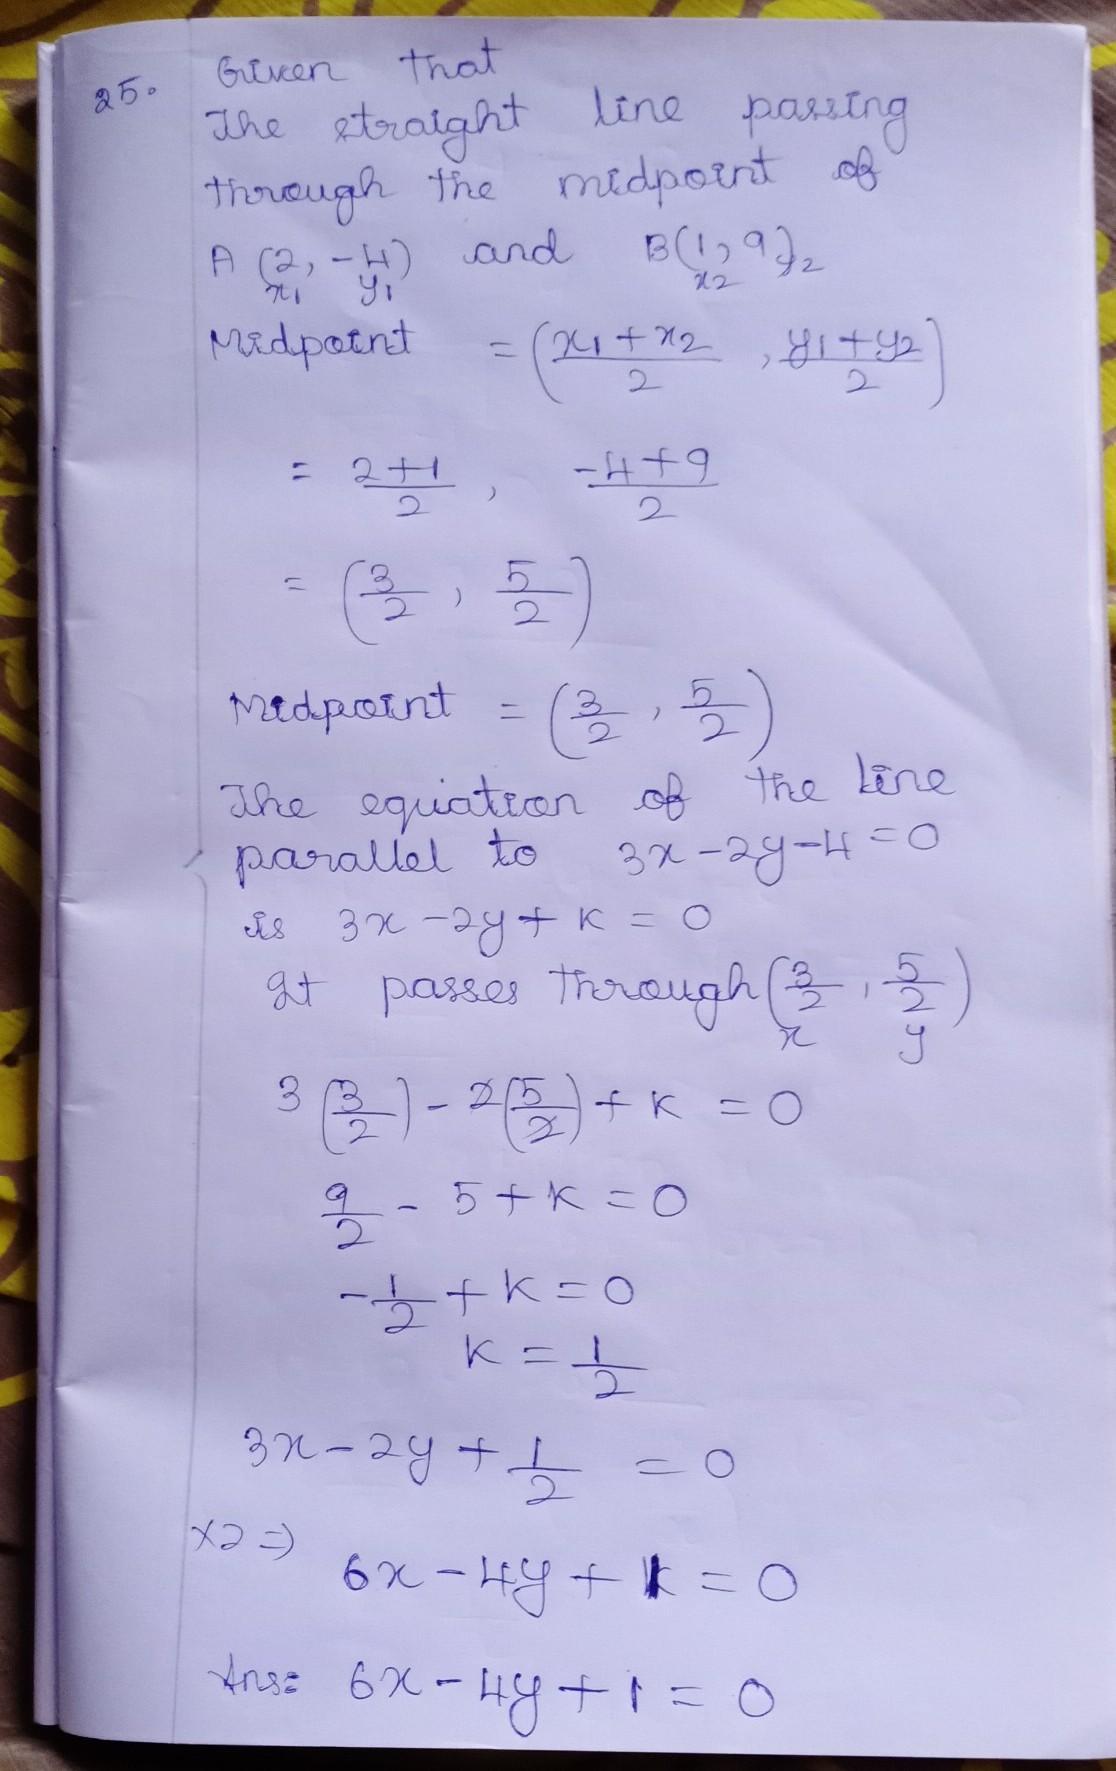 25. Given that
The straight line passing
through the midpoint of
A (2, -4) and B(1, 9)
x1 y1 x2 y2
Midpoint = (x1 + x2 / 2 , y1 + y2 / 2)
= 2+1 / 2 , -4+9 / 2
= (3/2 , 5/2)
Midpoint = (3/2 , 5/2)
The equation of the line
parallel to 3x - 2y - 4 = 0
is 3x - 2y + k = 0
It passes through (3/2 , 5/2)
x y
3(3/2) - 2(5/2) + k = 0
9/2 - 5 + k = 0
-1/2 + k = 0
k = 1/2
3x - 2y + 1/2 = 0
x2 ⇒
6x - 4y + 1 = 0
Ans: 6x - 4y + 1 = 0